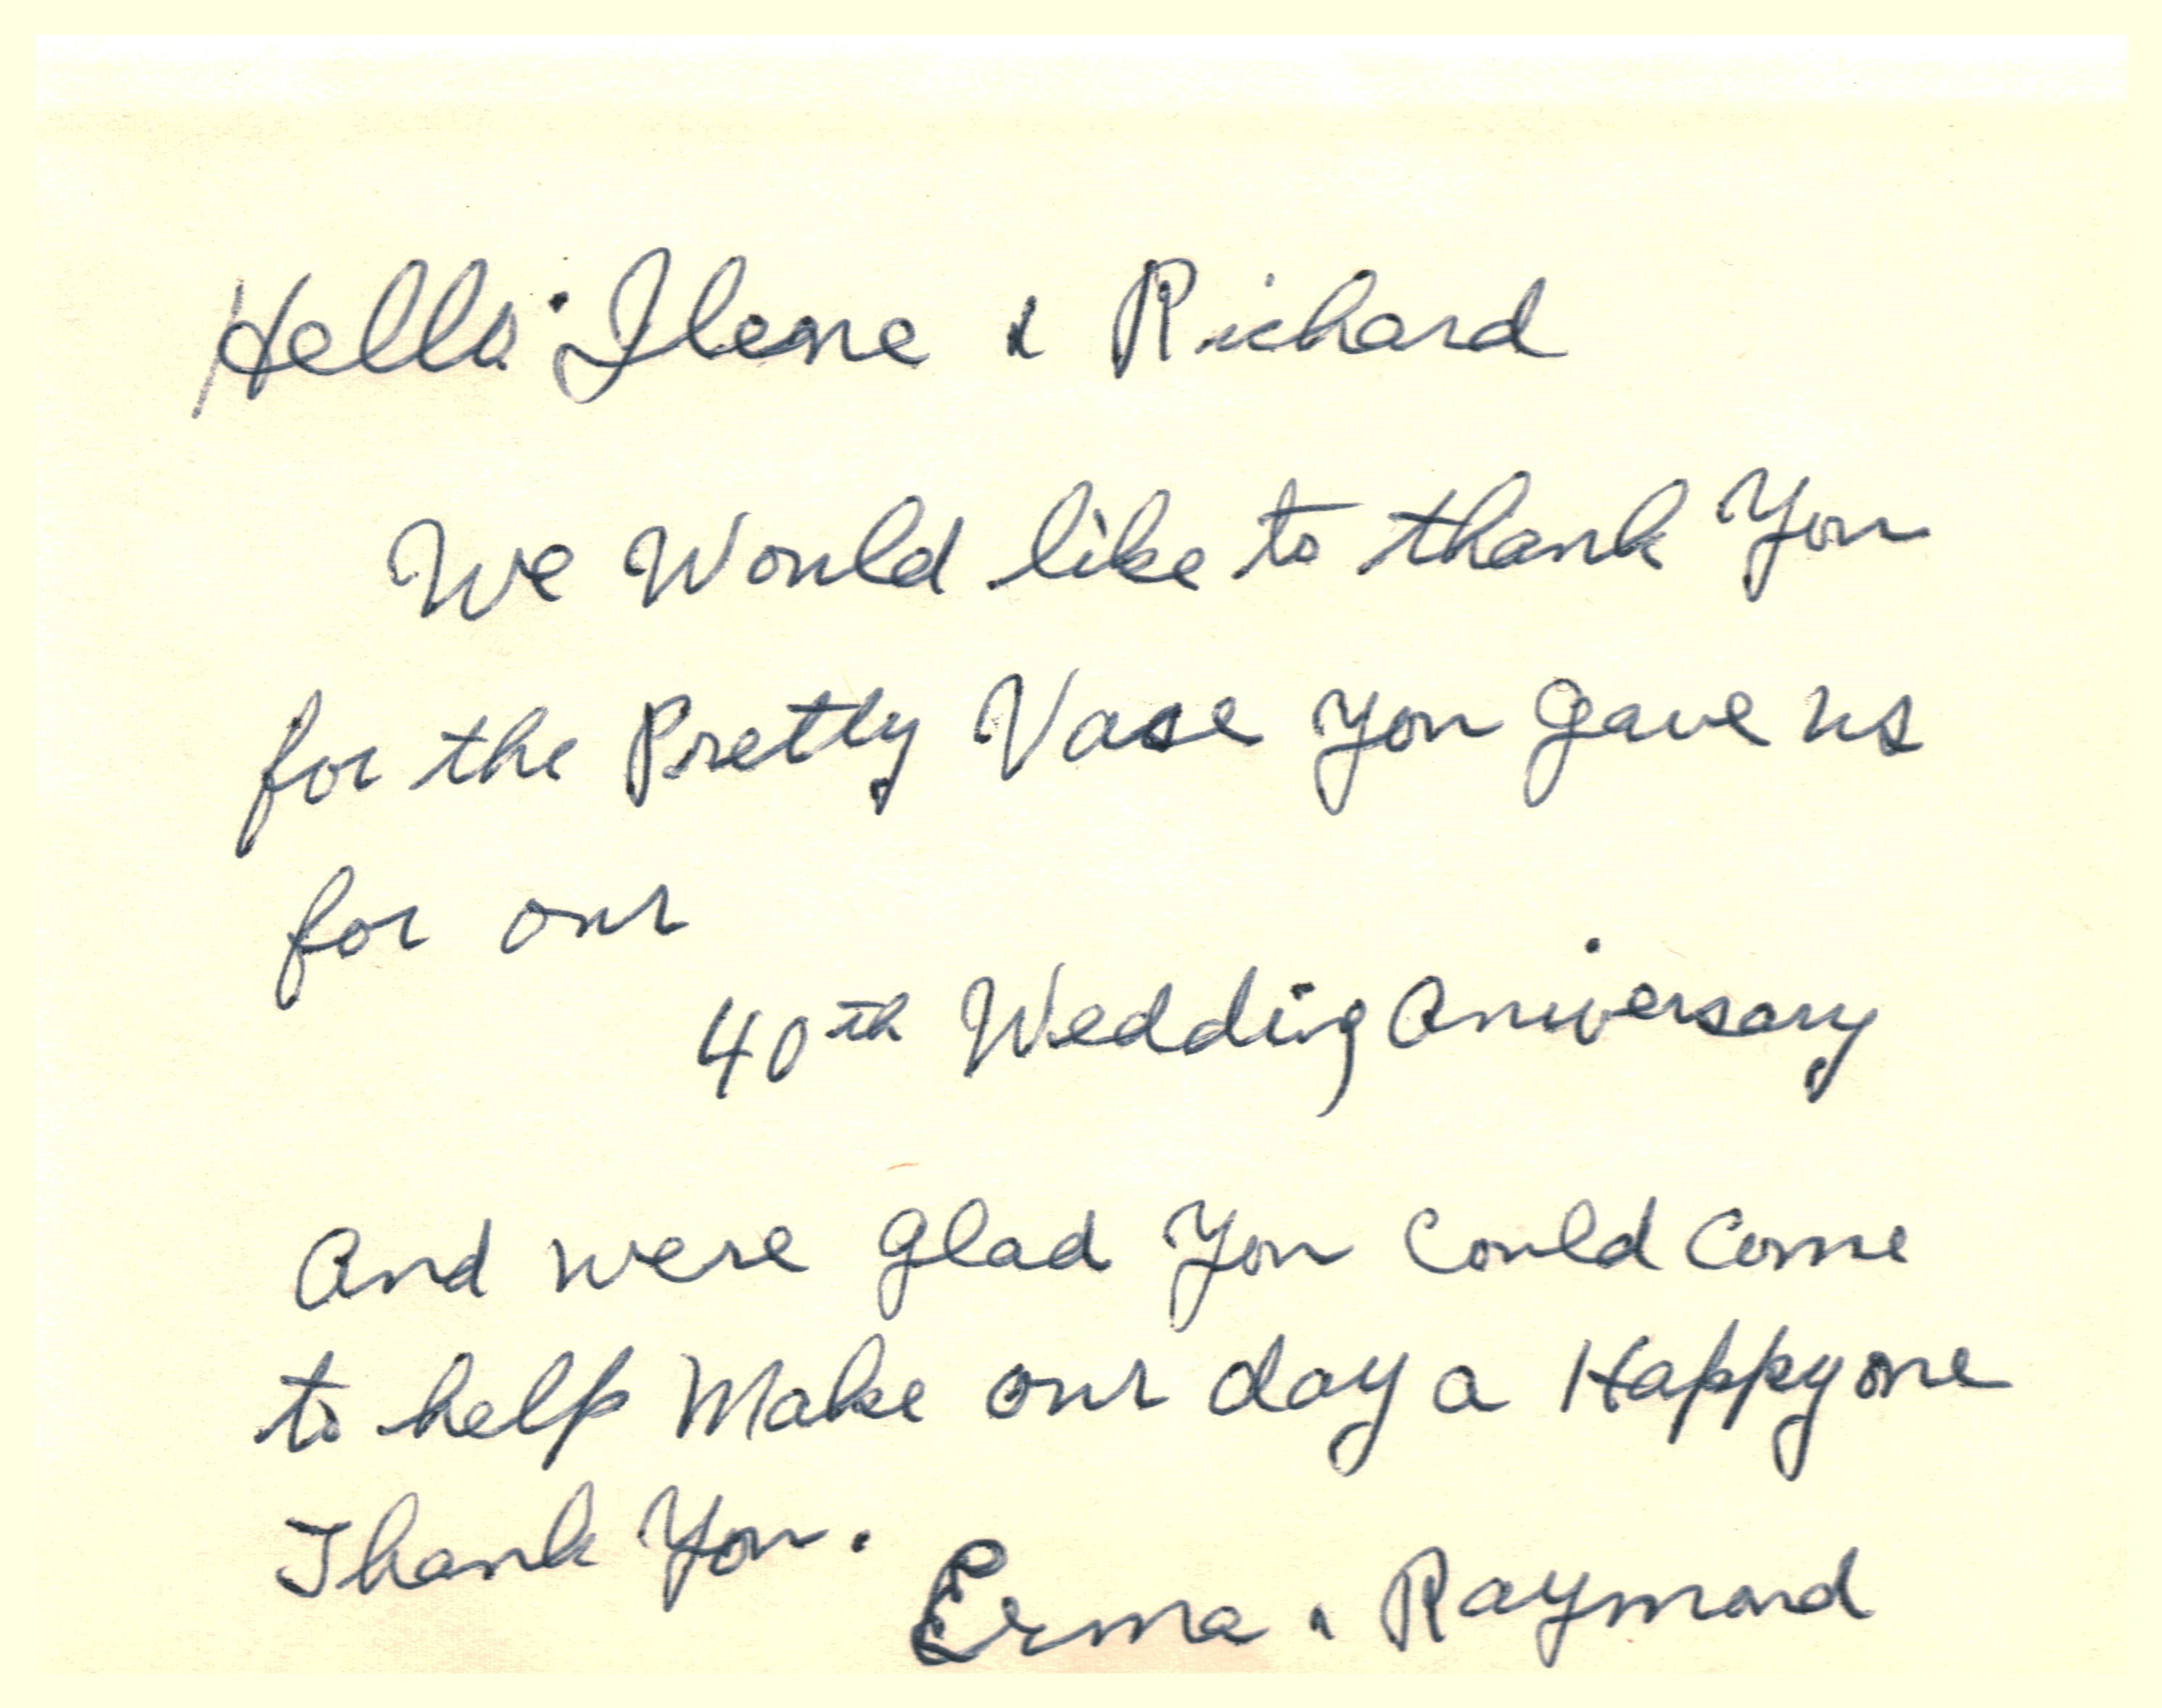 Hello Ilene & Richard
We Would like to thank You
for the Pretty Vase you gave us
for our
40th Wedding Aniversary
And were glad You Could Come
to help Make our day a Happy one
Thank You.
Erma & Raymond